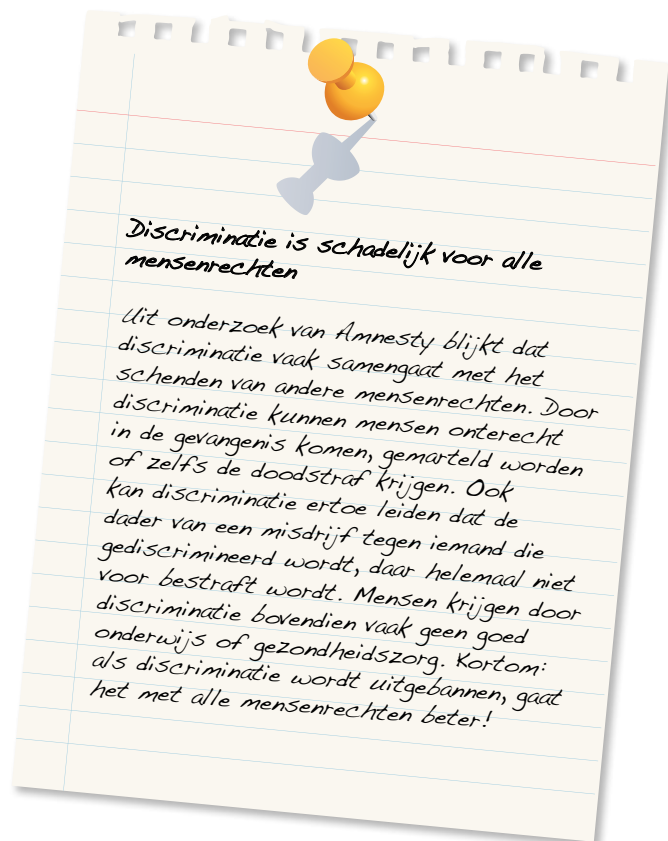 Discriminatie is schadelijk voor alle
mensenrechten
Uit onderzoek van Amnesty blijkt dat
discriminatie vaak samengaat met het
schenden van andere mensenrechten. Door
discriminatie kunnen mensen onterecht
in de gevangenis komen, gemarteld worden
of zelfs de doodstraf krijgen. Ook
kan discriminatie ertoe leiden dat de
dader van een misdrijf tegen iemand die
gediscrimineerd wordt, daar helemaal niet
voor bestraft wordt. Mensen krijgen door
discriminatie bovendien vaak geen goed
onderwijs of gezondheidszorg. Kortom:
als discriminatie wordt uitgebannen, gaat
het met alle mensenrechten beter!